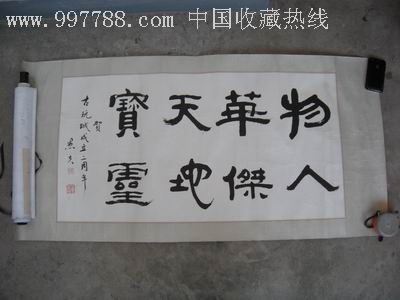 www.997788.com 中国收藏热线
物華天寶
人傑地靈
賀
古玩城成立二周年